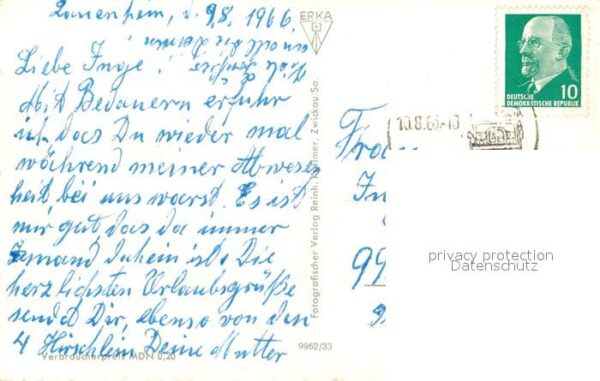 Lauenhein, d. 9.8. 1966.
Liebe Inge!
Mit Bedauern erfuhr
ich das Du wieder mal
während meiner Abwesen
heit bei uns warst. Es ist
mir gut das da immer
jemand daheim ist. Die
herzlichsten Urlaubsgrüße
sendet Dir, ebenso von den
4 Hirschlein Deine Mutter
Verbraucherpreis MDN 0,20
ERKA
Fotografischer Verlag Reinh. Kallmer, Zwickau/Sa.
9962/33
10.8.66-10
DEUTSCHE
DEMOKRATISCHE REPUBLIK
10
Frau
In
99
privacy protection
Datenschutz